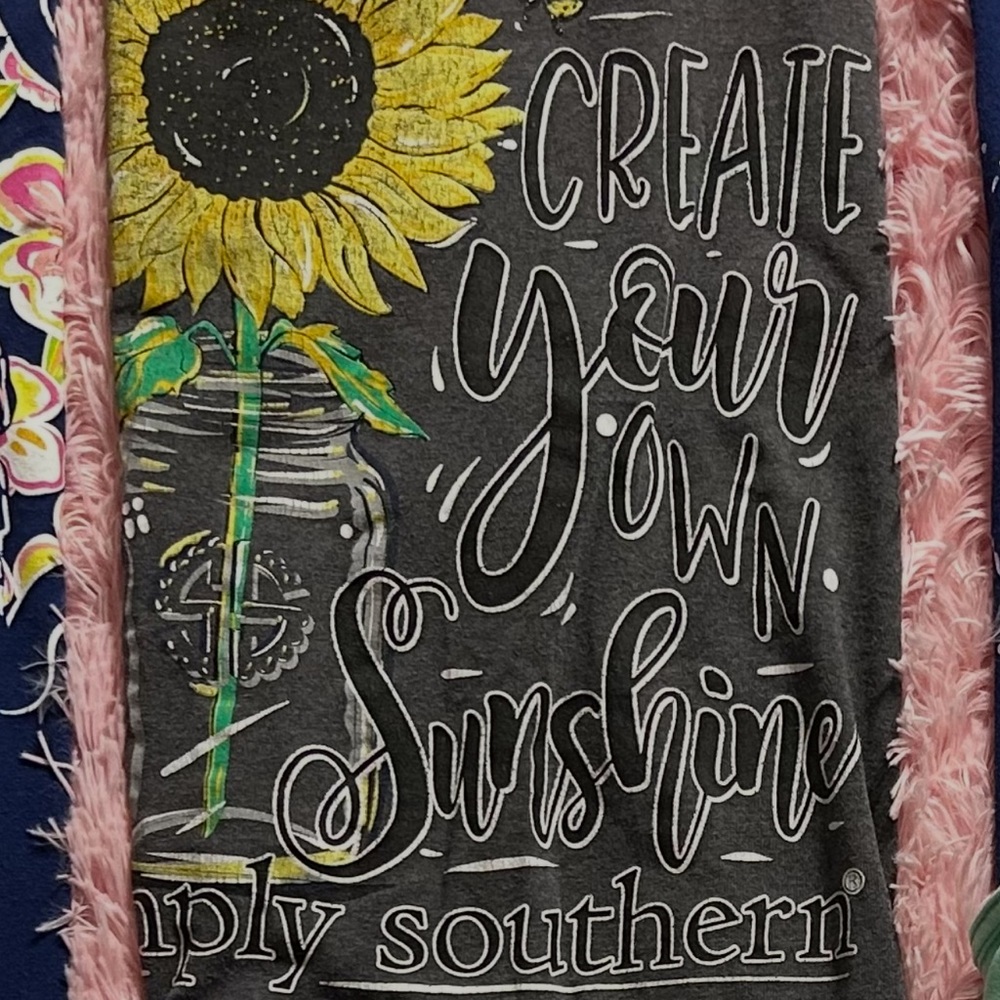 CREATE
your
OWN
Sunshine
mply southern®